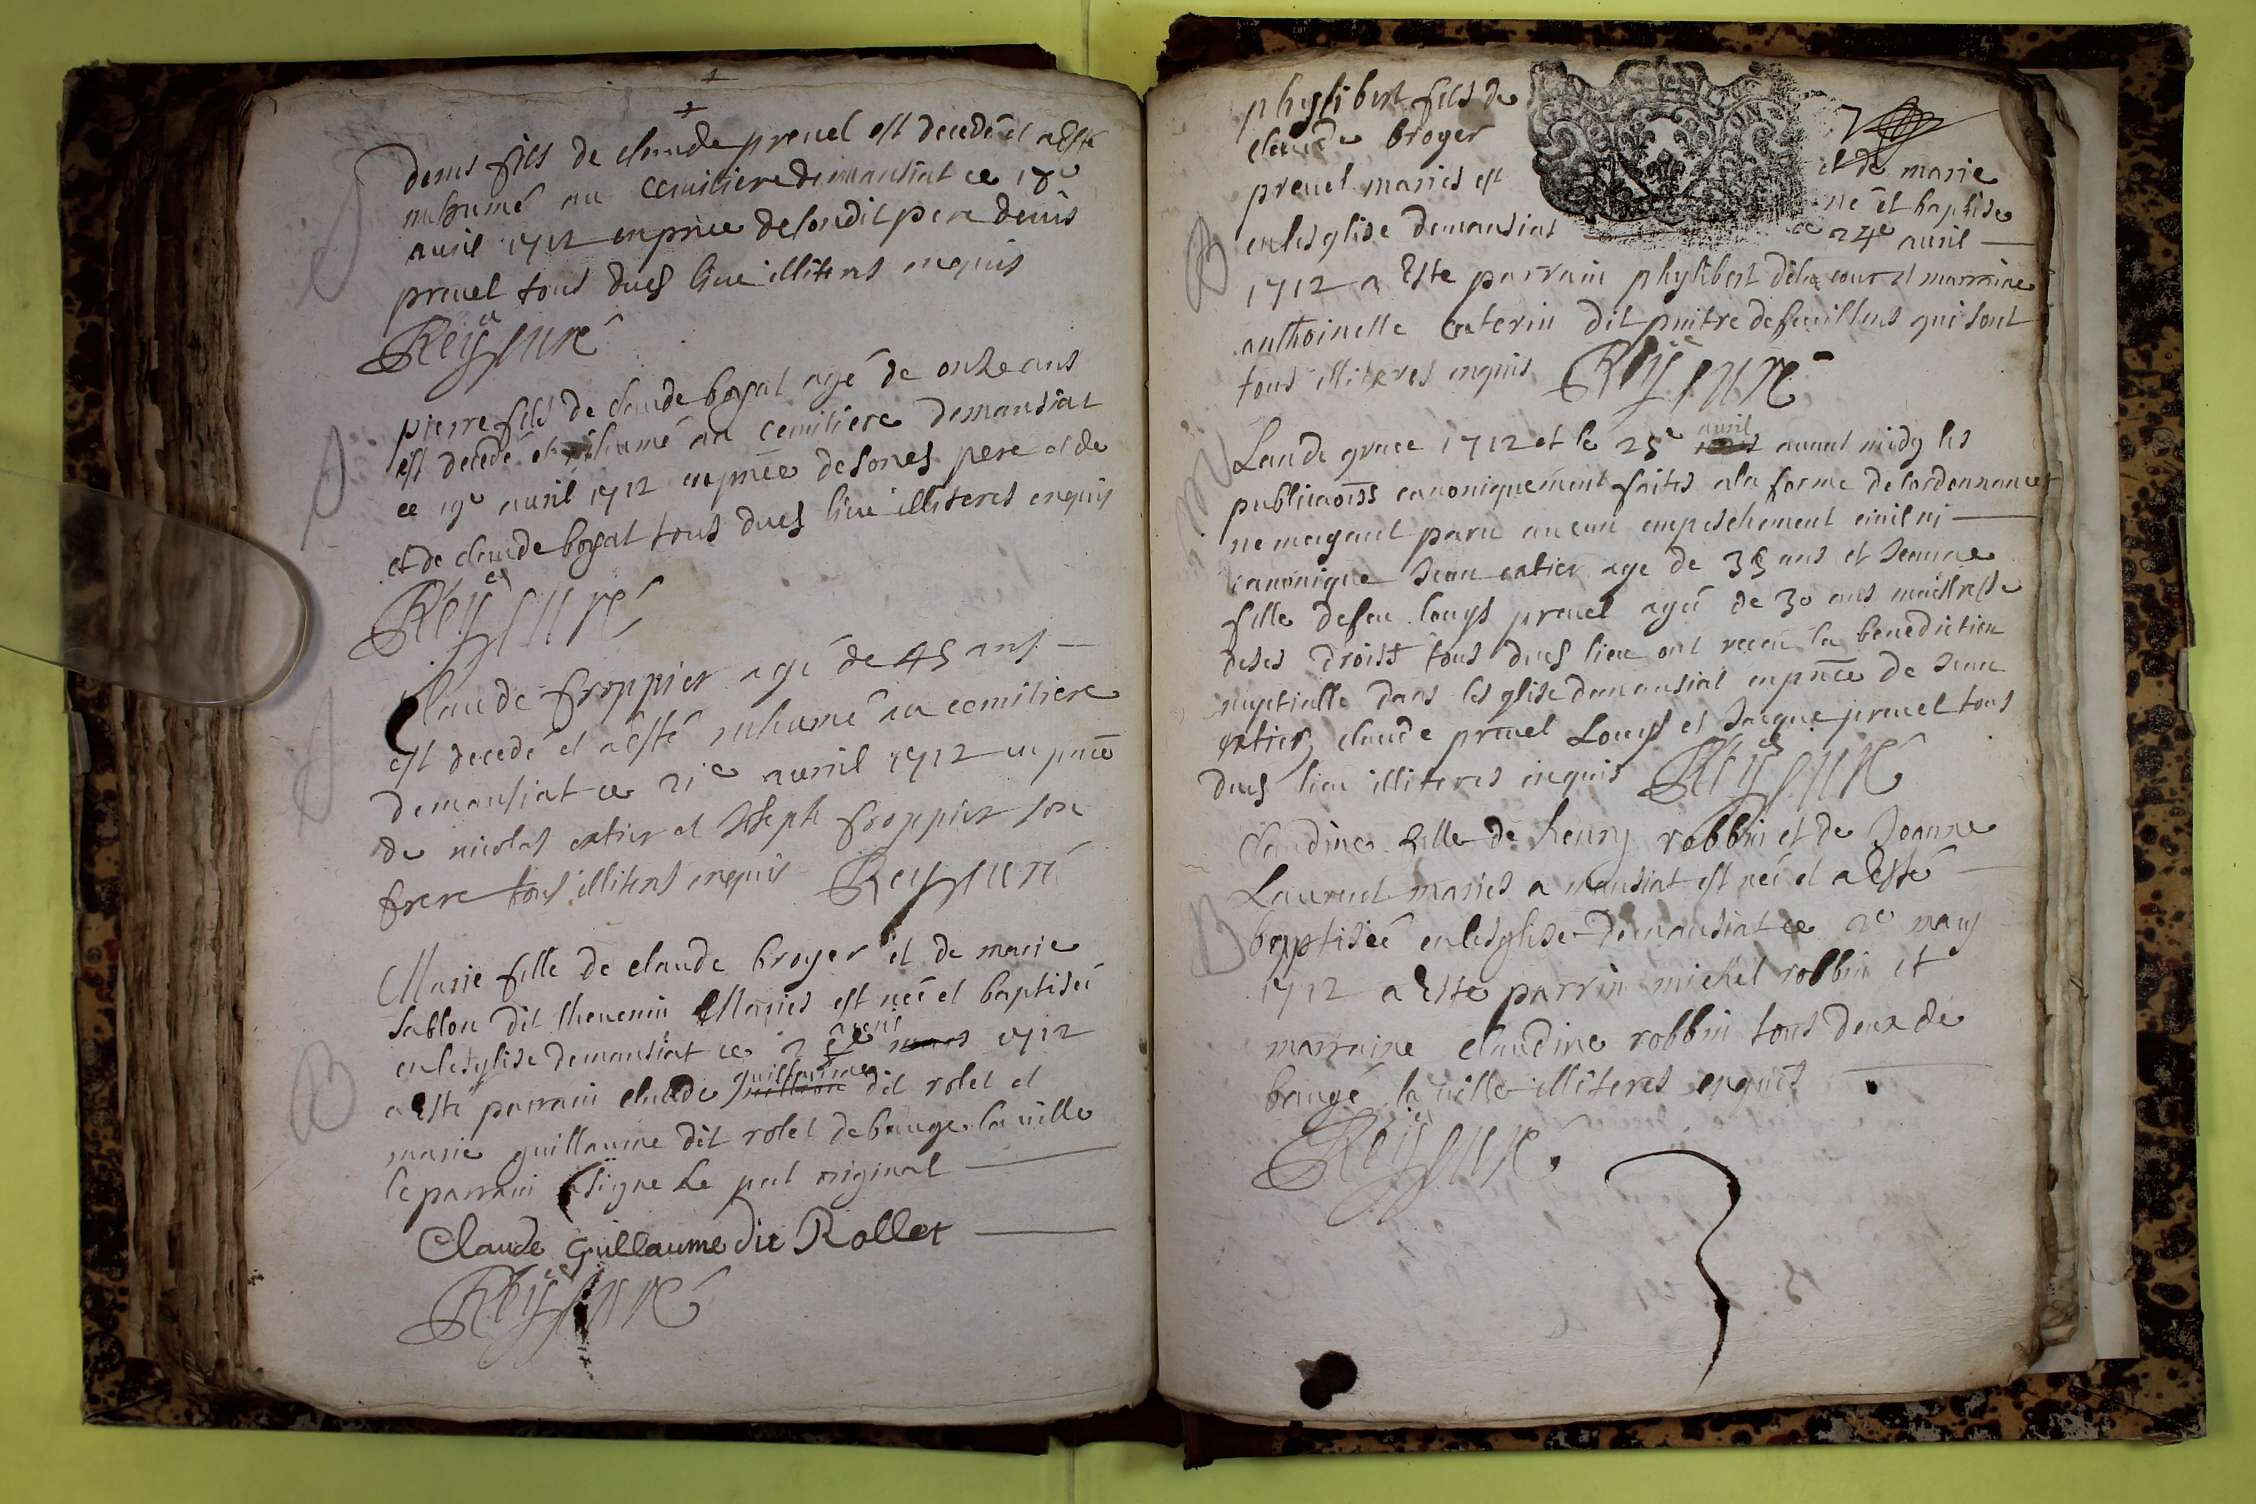 denis fils de claude preuel est decedé et a esté
inhumé au cemitiere de mansiat ce 18e
auril 1712 en pnce de sondit pere denis
preuel tous dud lieu illiteres enquis
Rey curé
pierre fils de claude boyat agé de onze ans
est decedé et inhumé au cemitiere demansiat
ce 19e auril 1712 en pnce de sones pere et de
et de claude boyat tous dud lieu illiteres enquis
Rey curé
Claude froppier agé de 45 ans
est decedé et a esté inhumé au cemitiere
demansiat ce 21e auril 1712 en pnce
de nicolas catier et Joseph froppier son
frere tous illiteres enquis Rey curé
Marie fille de claude broyer et de marie
sablon dit theuenin Maries est neé et baptiseé
en lesglise demansiat ce auril mars 1712
a esté parrain claude guillaume dit rolet et
marie guillaume dit rolet de bauge la uille
le parrain a signe le pnt original
Claude Guillaume dit Rollet
Rey curé
phylibert fils de
claude broyer et de marie
preuel maries est né et baptise
en lesglise demansiat ce 24e auril
1712 a Este parrain phylibert dela cour et marraine
anthoinette caterin dit puitre de feuillens qui sont
tous illiteres enquis Rey curé
B
Lan de grace 1712 et le 25e auril auant midy les
publicaoiss canoniquement faites ala forme de lordonnance
ne mayant paru aucun empeschement ciuil ni
canonique Jean catier age de 35 ans et Jeanne
fille de feu louys preuel ageé de 30 ans maistresse
de ses droist tous dud lieu ont receu la benediction
nuptialle dans lesglise demansiat en pnce de Jean
catier, claude preuel Louys et Jacque preuel tous
dud lieu illiteres enquis Rey curé
Claudine fille de henry robbin et de Jeanne
Laurent maries a mansiat est neé et a Esté
baptiseé en lesglise demansiat ce 2e may
1712 a Este parrin michel robbin et
marraine claudine robbin tous deux de
baugé la uille illiteres enquis
Rey curé
B